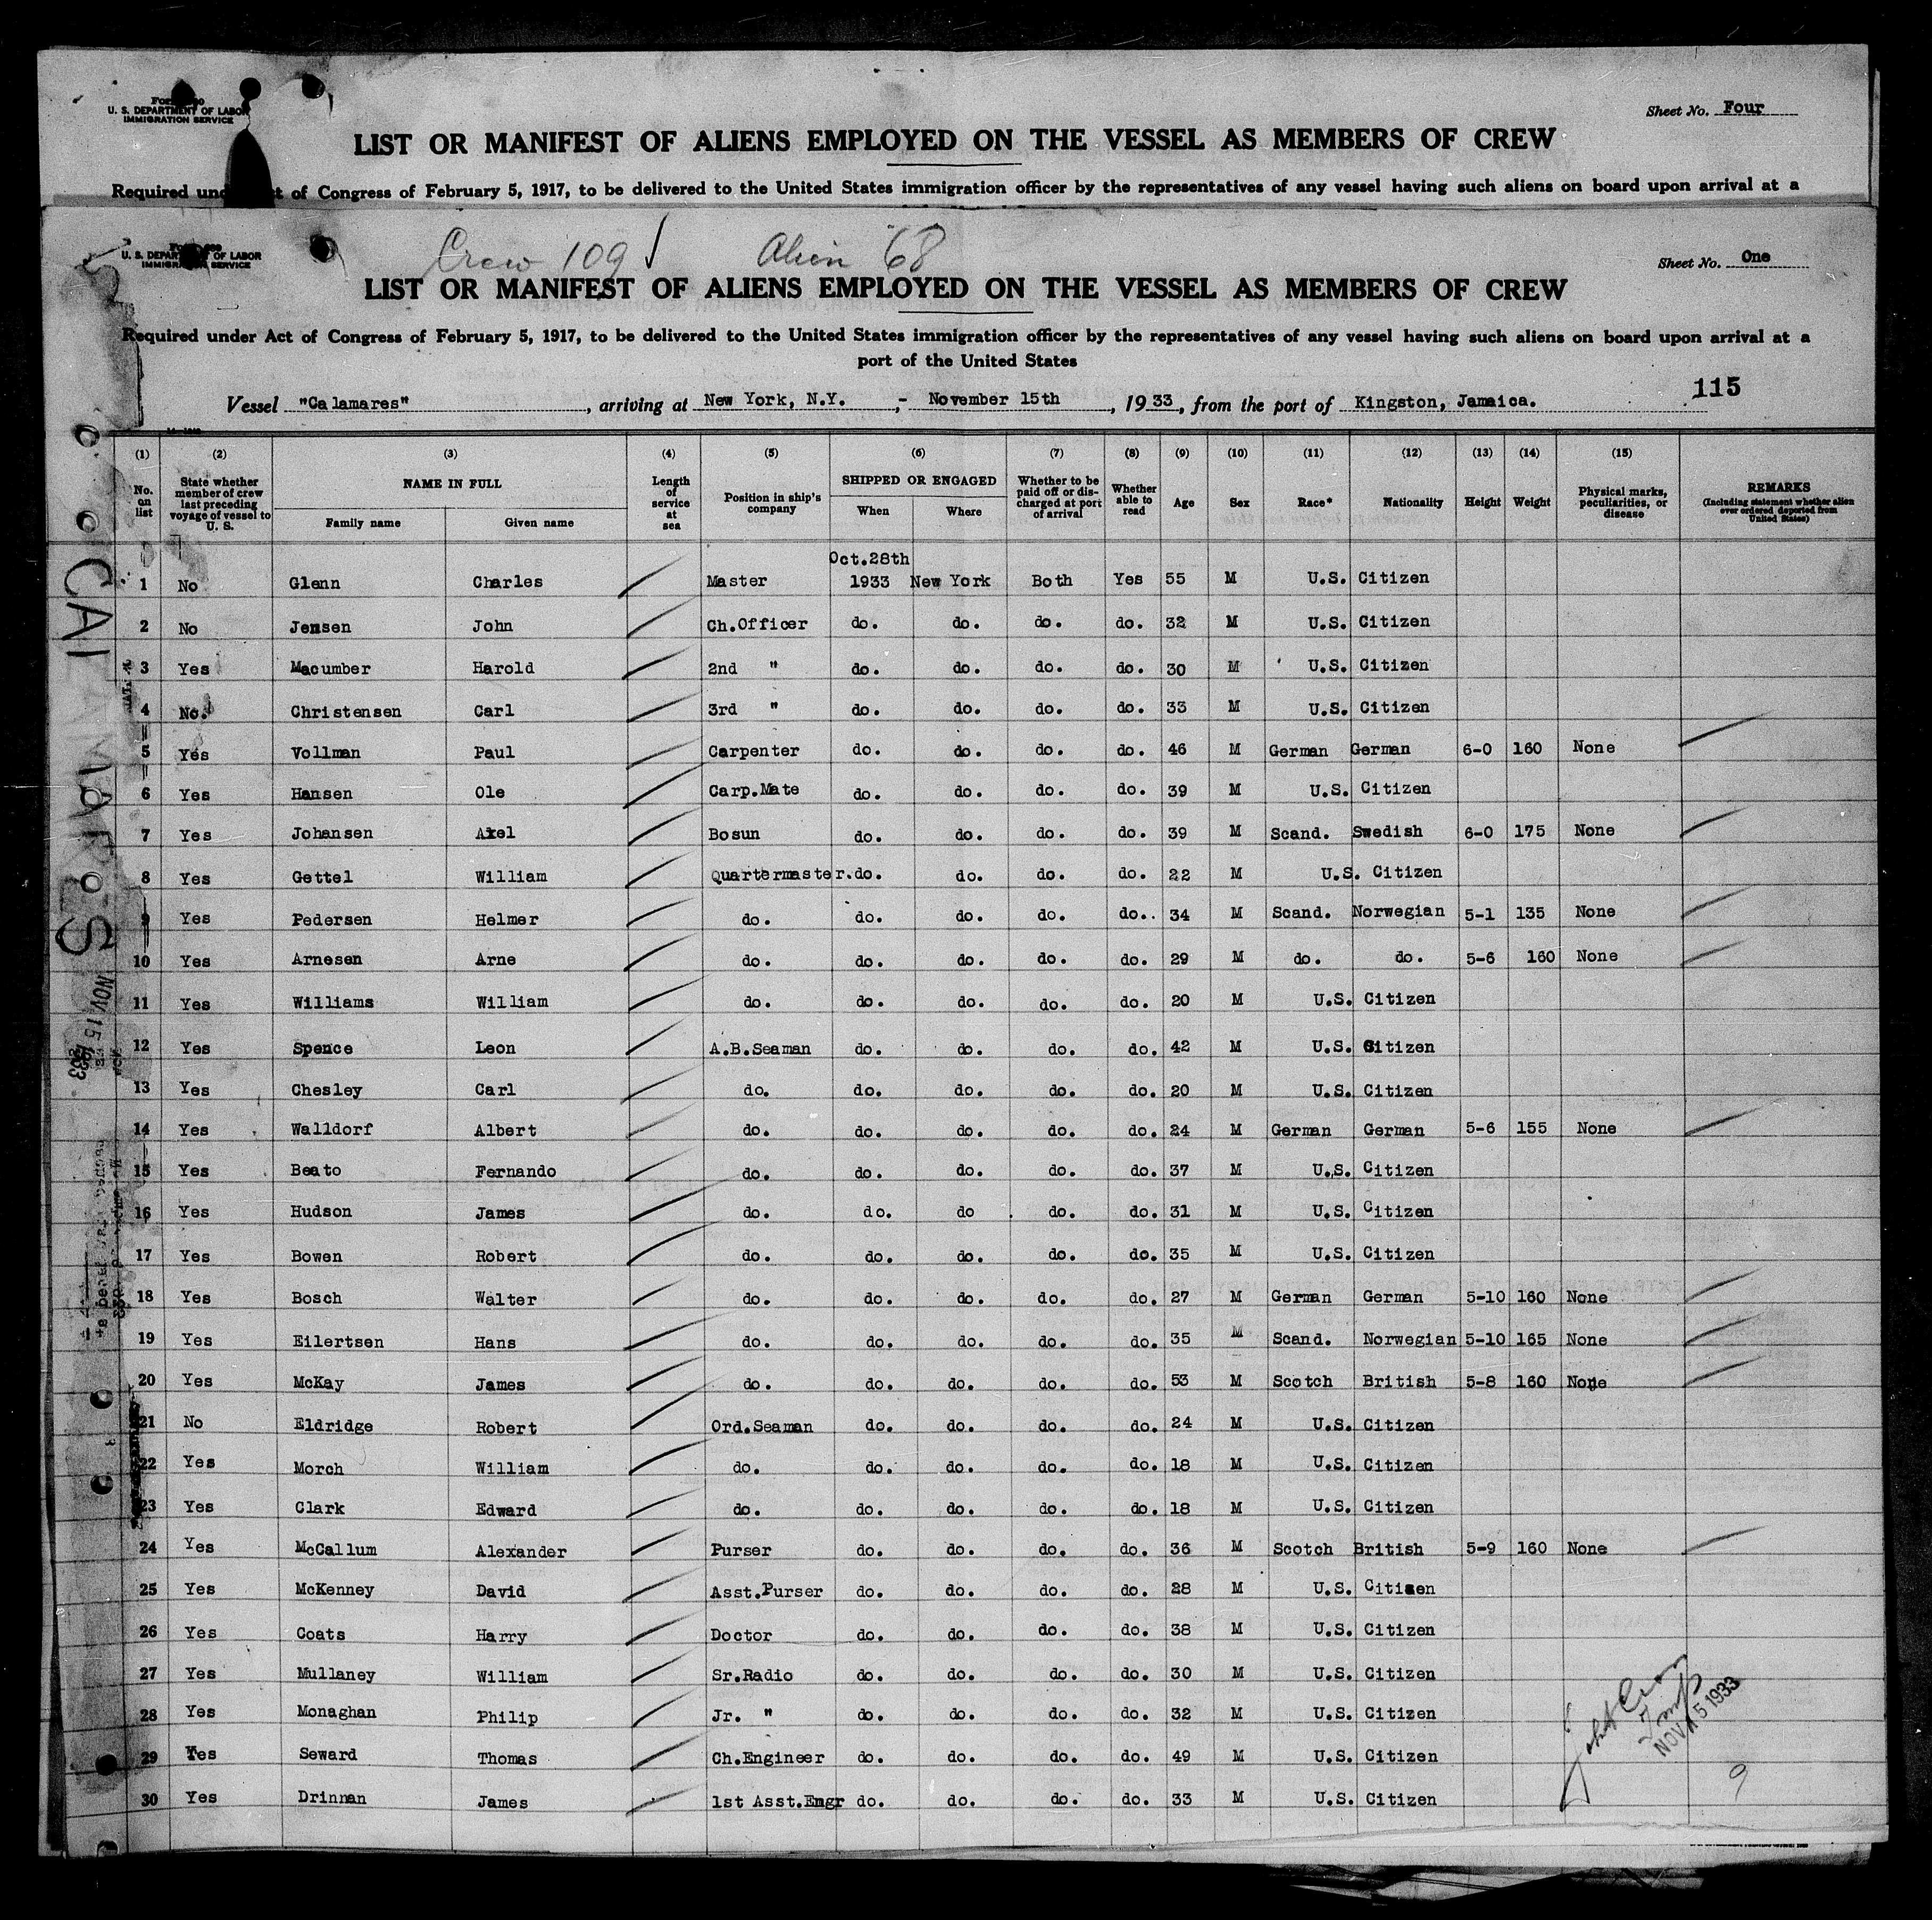 U. S. DEPARTMENT OF LABOR
IMMIGRATION SERVICE
Sheet No. Four
LIST OR MANIFEST OF ALIENS EMPLOYED ON THE VESSEL AS MEMBERS OF CREW
Required under Act of Congress of February 5, 1917, to be delivered to the United States immigration officer by the representatives of any vessel having such aliens on board upon arrival at a
Crew 109 Alien 68
U. S. DEPARTMENT OF LABOR
IMMIGRATION SERVICE
Sheet No. One
LIST OR MANIFEST OF ALIENS EMPLOYED ON THE VESSEL AS MEMBERS OF CREW
Required under Act of Congress of February 5, 1917, to be delivered to the United States immigration officer by the representatives of any vessel having such aliens on board upon arrival at a
port of the United States
115
Vessel "Calamares", arriving at New York, N.Y. - November 15th, 1933, from the port of Kingston, Jamaica.
(1) (2) (3) (4) (5) (6) (7) (8) (9) (10) (11) (12) (13) (14) (15)
No. on list State whether member of crew last preceding voyage of vessel to U. S. NAME IN FULL Family name Given name Length of service at sea Position in ship's company SHIPPED OR ENGAGED When Where Whether to be paid off or discharged at port of arrival Whether able to read Age Sex Race* Nationality Height Weight Physical marks, peculiarities, or disease REMARKS (Including statement whether alien ever ordered deported from United States)
1 No Glenn Charles Master Oct.28th 1933 New York Both Yes 55 M U.S. Citizen
2 No Jensen John Ch.Officer do. do. do. do. 32 M U.S. Citizen
3 Yes Macumber Harold 2nd " do. do. do. do. 30 M U.S. Citizen
4 No. Christensen Carl 3rd " do. do. do. do. 33 M U.S. Citizen
5 Yes Vollman Paul Carpenter do. do. do. do. 46 M German German 6-0 160 None
6 Yes Hansen Ole Carp.Mate do. do. do. do. 39 M U.S. Citizen
7 Yes Johansen Axel Bosun do. do. do. do. 39 M Scand. Swedish 6-0 175 None
8 Yes Gettel William Quartermaster. do. do. do. do. 22 M U.S. Citizen
9 Yes Pedersen Helmer do. do. do. do. do.. 34 M Scand. Norwegian 5-1 135 None
10 Yes Arnesen Arne do. do. do. do. do. 29 M do. do. 5-6 160 None
11 Yes Williams William do. do. do. do. do. 20 M U.S. Citizen
12 Yes Spence Leon A.B.Seaman do. do. do. do. 42 M U.S. Citizen
13 Yes Chesley Carl do. do. do. do. do. 20 M U.S. Citizen
14 Yes Walldorf Albert do. do. do. do. do. 24 M German German 5-6 155 None
15 Yes Beato Fernando do. do. do. do. do. 37 M U.S. Citizen
16 Yes Hudson James do. do. do do. do. 31 M U.S. Citizen
17 Yes Bowen Robert do. do. do. do. do. 35 M U.S. Citizen
18 Yes Bosch Walter do. do. do. do. do. 27 M German German 5-10 160 None
19 Yes Eilertsen Hans do. do. do. do. do. 35 M Scand. Norwegian 5-10 165 None
20 Yes McKay James do. do. do. do. do. 53 M Scotch British 5-8 160 None
21 No Eldridge Robert Ord.Seaman do. do. do. do. 24 M U.S. Citizen
22 Yes Morch William do. do. do. do. do. 18 M U.S. Citizen
23 Yes Clark Edward do. do. do. do. do. 18 M U.S. Citizen
24 Yes McCallum Alexander Purser do. do. do. do. 36 M Scotch British 5-9 160 None
25 Yes McKenney David Asst.Purser do. do. do. do. 28 M U.S. Citizen
26 Yes Coats Harry Doctor do. do. do. do. 38 M U.S. Citizen
27 Yes Mullaney William Sr.Radio do. do. do. do. 30 M U.S. Citizen
28 Yes Monaghan Philip Jr. " do. do. do. do. 32 M U.S. Citizen
29 Yes Seward Thomas Ch.Engineer do. do. do. do. 49 M U.S. Citizen
30 Yes Drinnan James 1st Asst.Engr do. do. do. do. 33 M U.S. Citizen
NOV 15 1933
9
CALAMARES
NOV 15 1933